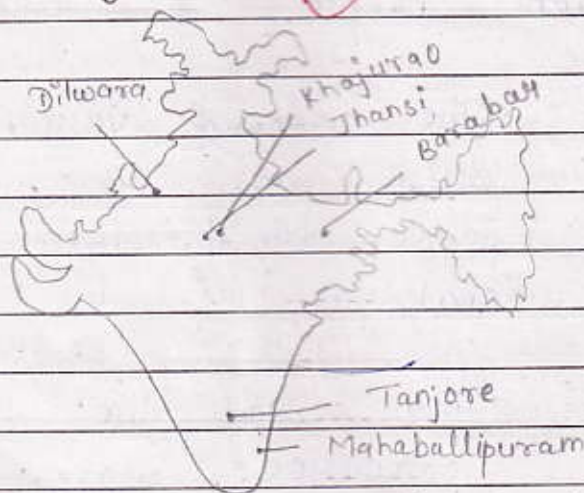 Dilwara.
Khajurao
Jhansi
Barabar
Tanjore
Mahaballipuram